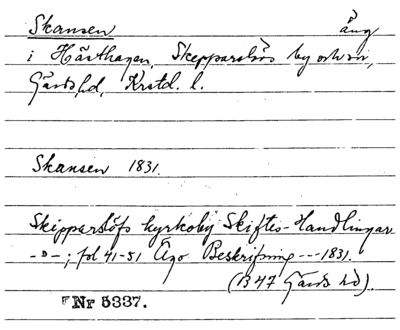 Skansen äng
i Hästhagen, Skepparslövs by och sn,
Gärds hd, Krstd. l.
Skansen 1831.
Skipparslöfs kyrkoby Skiftes-Handlingar
-D-; fol 41-51 Ägo Beskrifning --- 1831.
(B 47 Gärds hd).
Nr 5337.